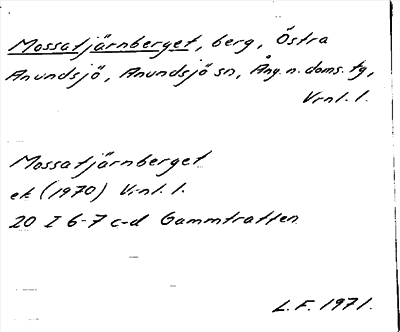 Mossatjärnberget, berg, Östra
Anundsjö, Anundsjö sn, Ång. n. doms. tg,
Vrnl. l.
Mossatjärnberget
ek (1970) Vrnl. l.
20 I 6-7 c-d Gammtratten
L.F. 1971.